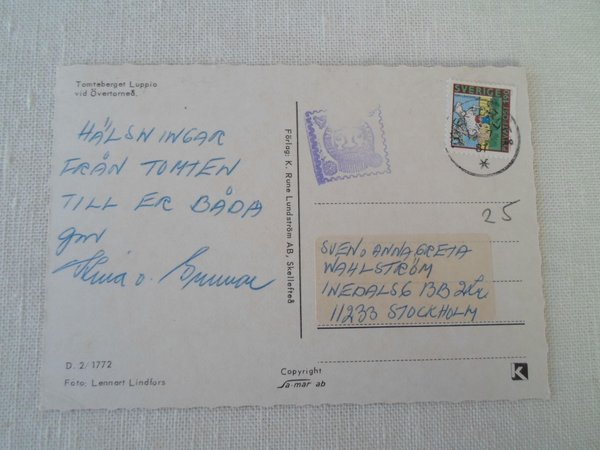 Tomteberget Luppio
vid Övertorneå.
HÄLSNINGAR
FRÅN TOMTEN
TILL ER BÅDA
gm
o. Gunnar
D. 2/1772
Foto: Lennart Lindfors
Förlag: K. Rune Lundström AB, Skellefteå
Copyright
Sa-mär ab
SVERIGE
25
SVEN o ANNAGRETA
WAHLSTRÖM
INEDALSG 13B 2tr
11233 STOCKHOLM
K